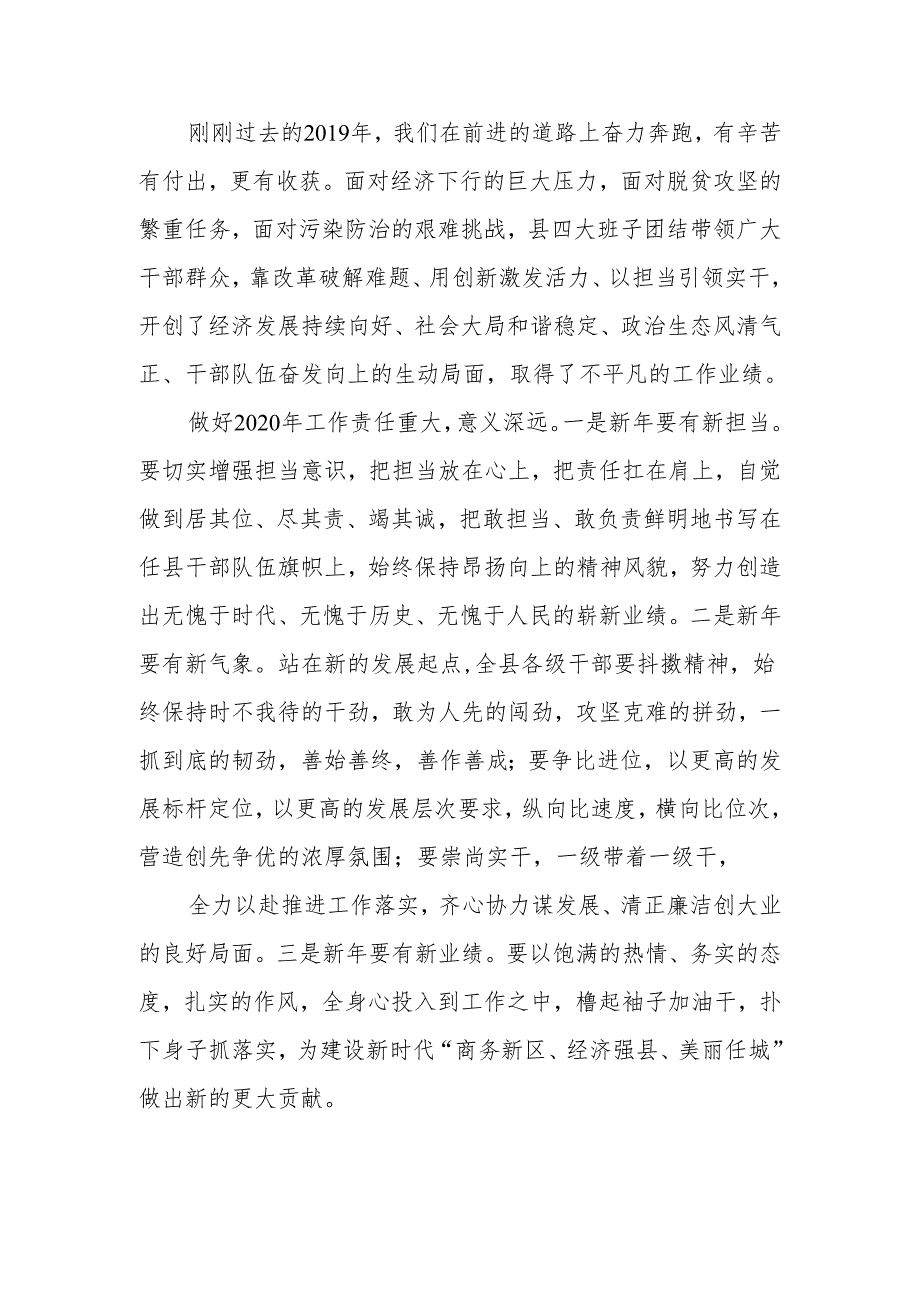 刚刚过去的2019年，我们在前进的道路上奋力奔跑，有辛苦
有付出，更有收获。面对经济下行的巨大压力，面对脱贫攻坚的
繁重任务，面对污染防治的艰难挑战，县四大班子团结带领广大
干部群众，靠改革破解难题、用创新激发活力、以担当引领实干，
开创了经济发展持续向好、社会大局和谐稳定、政治生态风清气
正、干部队伍奋发向上的生动局面，取得了不平凡的工作业绩。
做好2020年工作责任重大,意义深远。一是新年要有新担当。
要切实增强担当意识，把担当放在心上，把责任扛在肩上，自觉
做到居其位、尽其责、竭其诚，把敢担当、敢负责鲜明地书写在
任县干部队伍旗帜上，始终保持昂扬向上的精神风貌，努力创造
出无愧于时代、无愧于历史、无愧于人民的崭新业绩。二是新年
要有新气象。站在新的发展起点,全县各级干部要抖擞精神，始
终保持时不我待的干劲，敢为人先的闯劲，攻坚克难的拼劲，一
抓到底的韧劲，善始善终，善作善成；要争比进位，以更高的发
展标杆定位，以更高的发展层次要求，纵向比速度，横向比位次，
营造创先争优的浓厚氛围；要崇尚实干，一级带着一级干，
全力以赴推进工作落实，齐心协力谋发展、清正廉洁创大业
的良好局面。三是新年要有新业绩。要以饱满的热情、务实的态
度，扎实的作风，全身心投入到工作之中，橹起袖子加油干，扑
下身子抓落实，为建设新时代“商务新区、经济强县、美丽任城”
做出新的更大贡献。